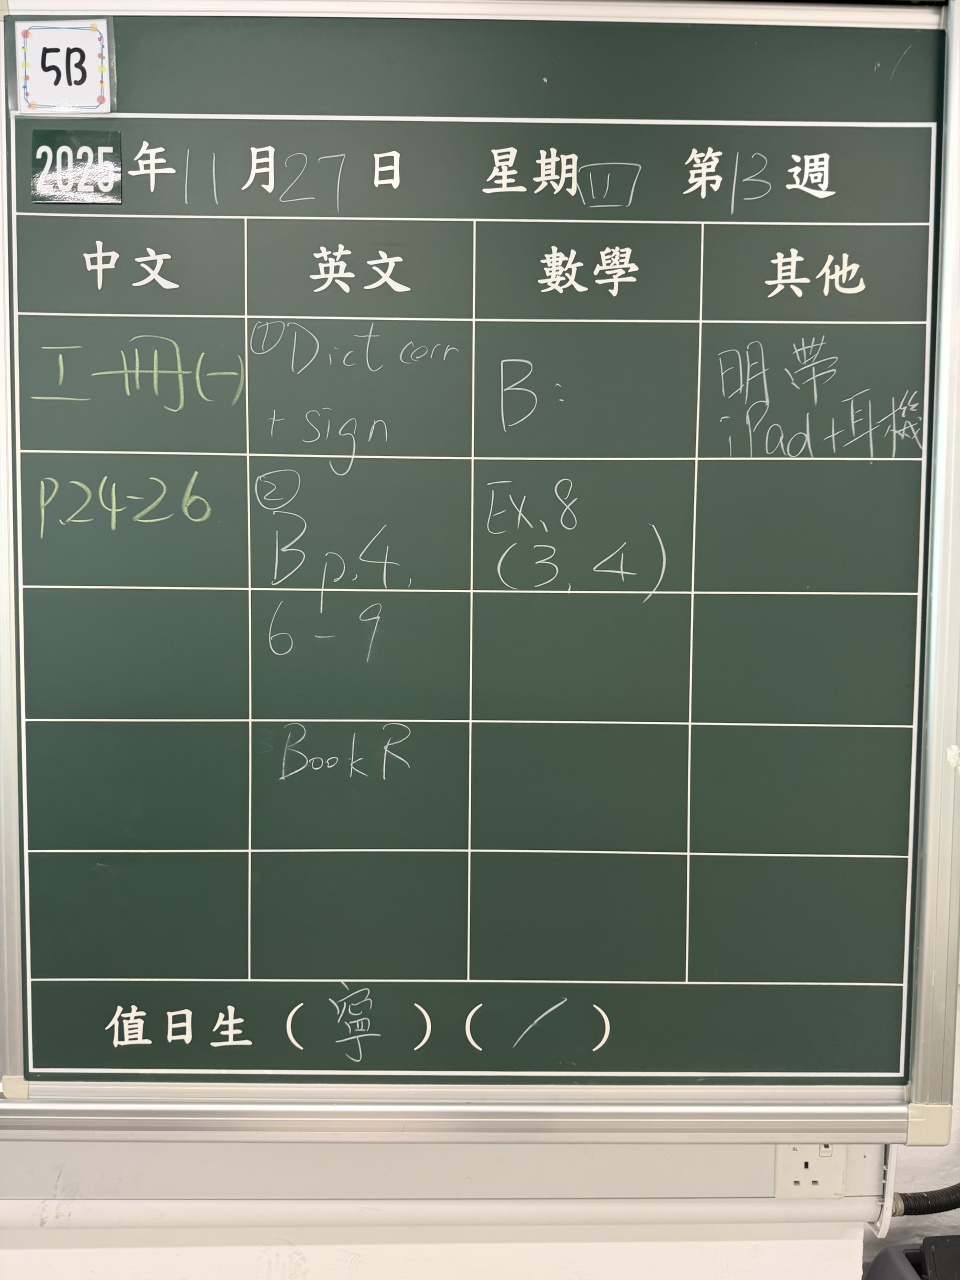 5B
2025年11月27日 星期四 第13週
中文 英文 數學 其他
工冊(一)
P.24-26
① Dict corr
+ sign
②
B p.4,
6-9
Book R
B:
Ex.8
(3, 4)
明帶
iPad+耳機
值日生(寧)(/)